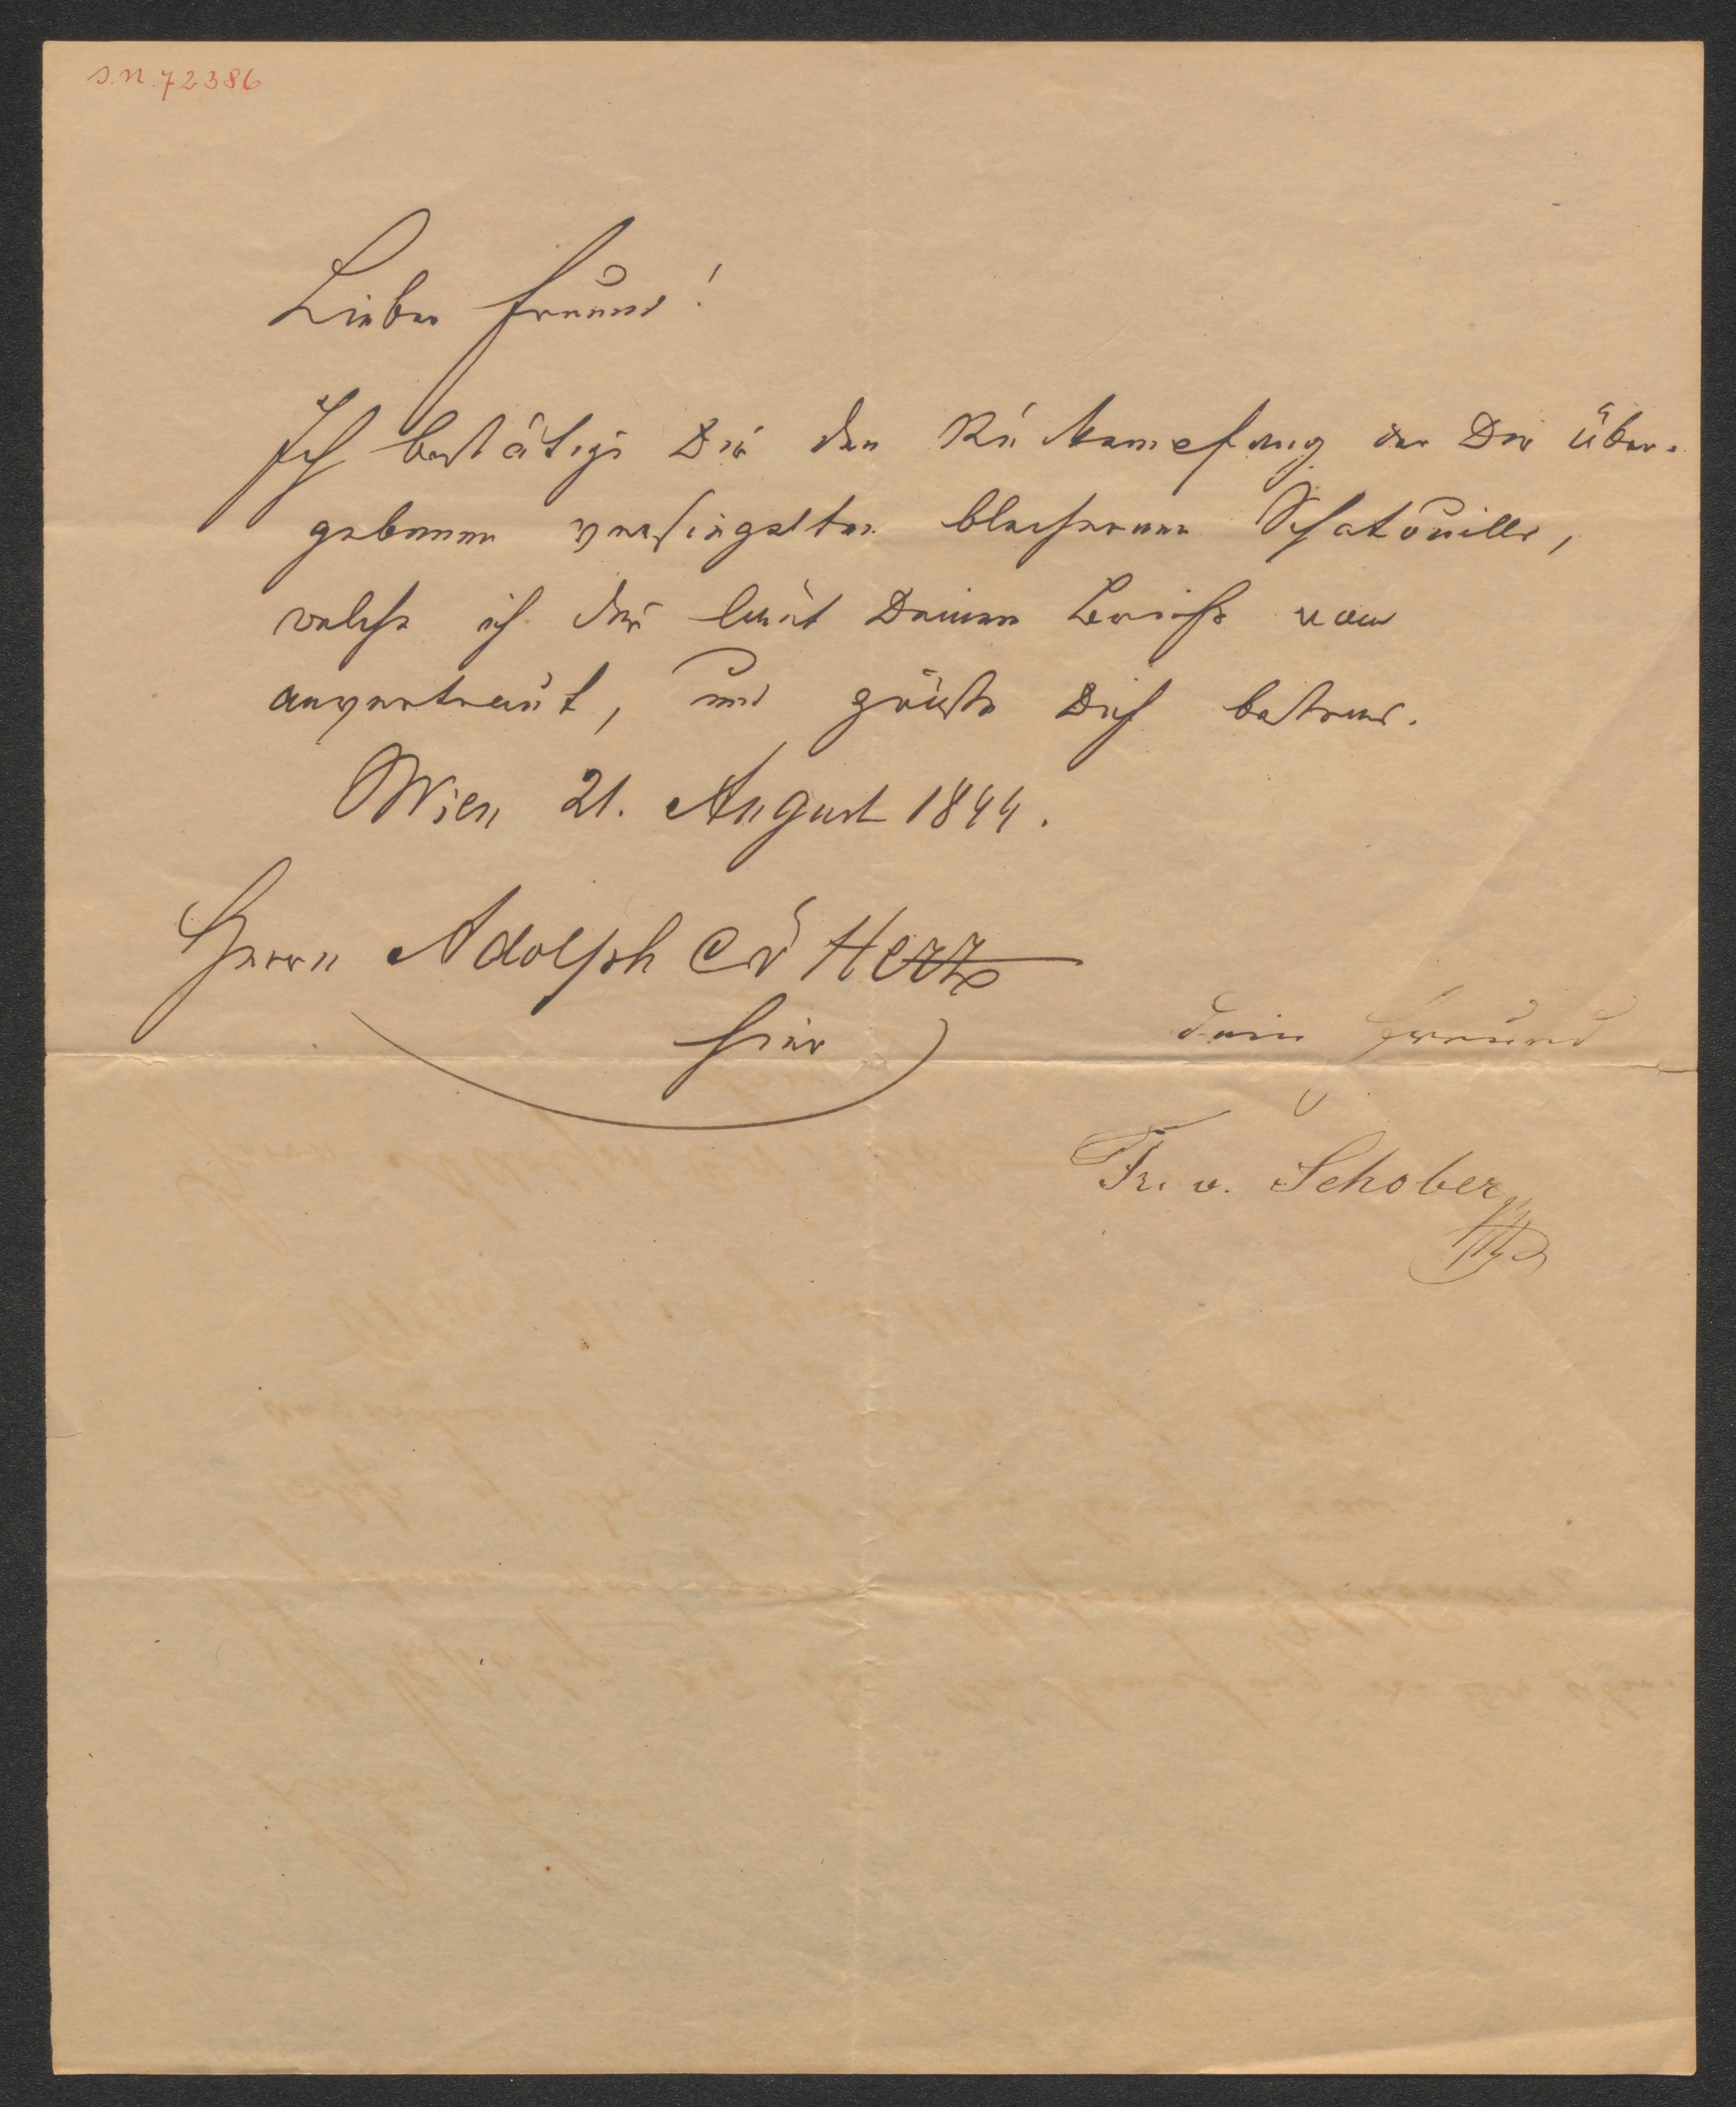 J.N. 72386
Lieber Freund!
Ich bestätige Dir den Rückempfang der Dir über-
gebenen versiegelten blechernen Schatouille,
welche ich Dir laut Deinem
anvertraut, und grüße Dich bestens.
Wien 21. August 1844.
Herrn Adolph C v Herz
hier
Dein Freund
Fr. v. Schober